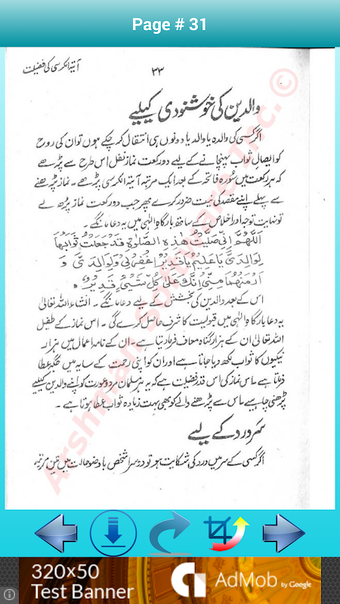 Page # 31
آیتہ الکرسی کی فضیلت
۳۳
والدین کی خوشنودی کیلیے
اگر کسی کی والدہ یا والد یا دونوں ہی انتقال کر چکے ہوں تو ان کی روح
کو ایصالِ ثواب پہنچانے کے لیے دو رکعت نماز نفل اس طرح سے پڑھے
کہ ہر رکعت میں سورہ فاتحہ کے بعد ایک مرتبہ آیتہ الکرسی پڑھے۔ نماز پڑھنے
سے پہلے اپنے مقصد کی نیت ضرور کرے پھر جب دو رکعت نماز پڑھ لے
تو نہایت توجہ اور اخلاص کے ساتھ بارگاہ الٰہی میں یہ دعا مانگے۔
اَللّٰهُمَّ اِنِّی صَلَّیْتُ هٰذِهِ الصَّلٰوةَ قَدْ جَعَلْتُ ثَوَابَهَا
لِوَالِدَیَّ یَا عَلِیْمُ یَا قَدِیْرُ اغْفِرْلِیْ وَلِوَالِدَیَّ وَ
ارْحَمْهُمَا اِنَّكَ عَلٰی كُلِّ شَیْئٍ قَدِیْرٌ
اس کے بعد والدین کی بخشش کے لیے دعا مانگے۔ انشاء اللہ تعالیٰ
یہ دعا بارگاہ الٰہی میں قبولیت کا شرف حاصل کرے گی۔ اس نماز کے طفیل
اللہ تعالیٰ ان کے ہزار گناہ معاف فرما دیتا ہے۔ ان کے نامہ اعمال میں ہزار
نیکیوں کا ثواب لکھ دیا جاتا ہے اور ان کو اپنی رحمت کے سایہ میں جگہ عطا
فرماتا ہے اس نماز کی اس قدر فضیلت ہے کہ یہ ہر مسلمان مرد و عورت کو اپنے والدین کیلیے
پڑھنی چاہیے اس سے پڑھنے والے کو بھی بہت زیادہ ثواب عطا ہوتا ہے۔
سر درد کے لیے
اگر کسی کے سر میں درد کی شکایت ہو تو دوسرا شخص باوضو حالت میں تین مرتبہ
320x50
Test Banner
AdMob by Google